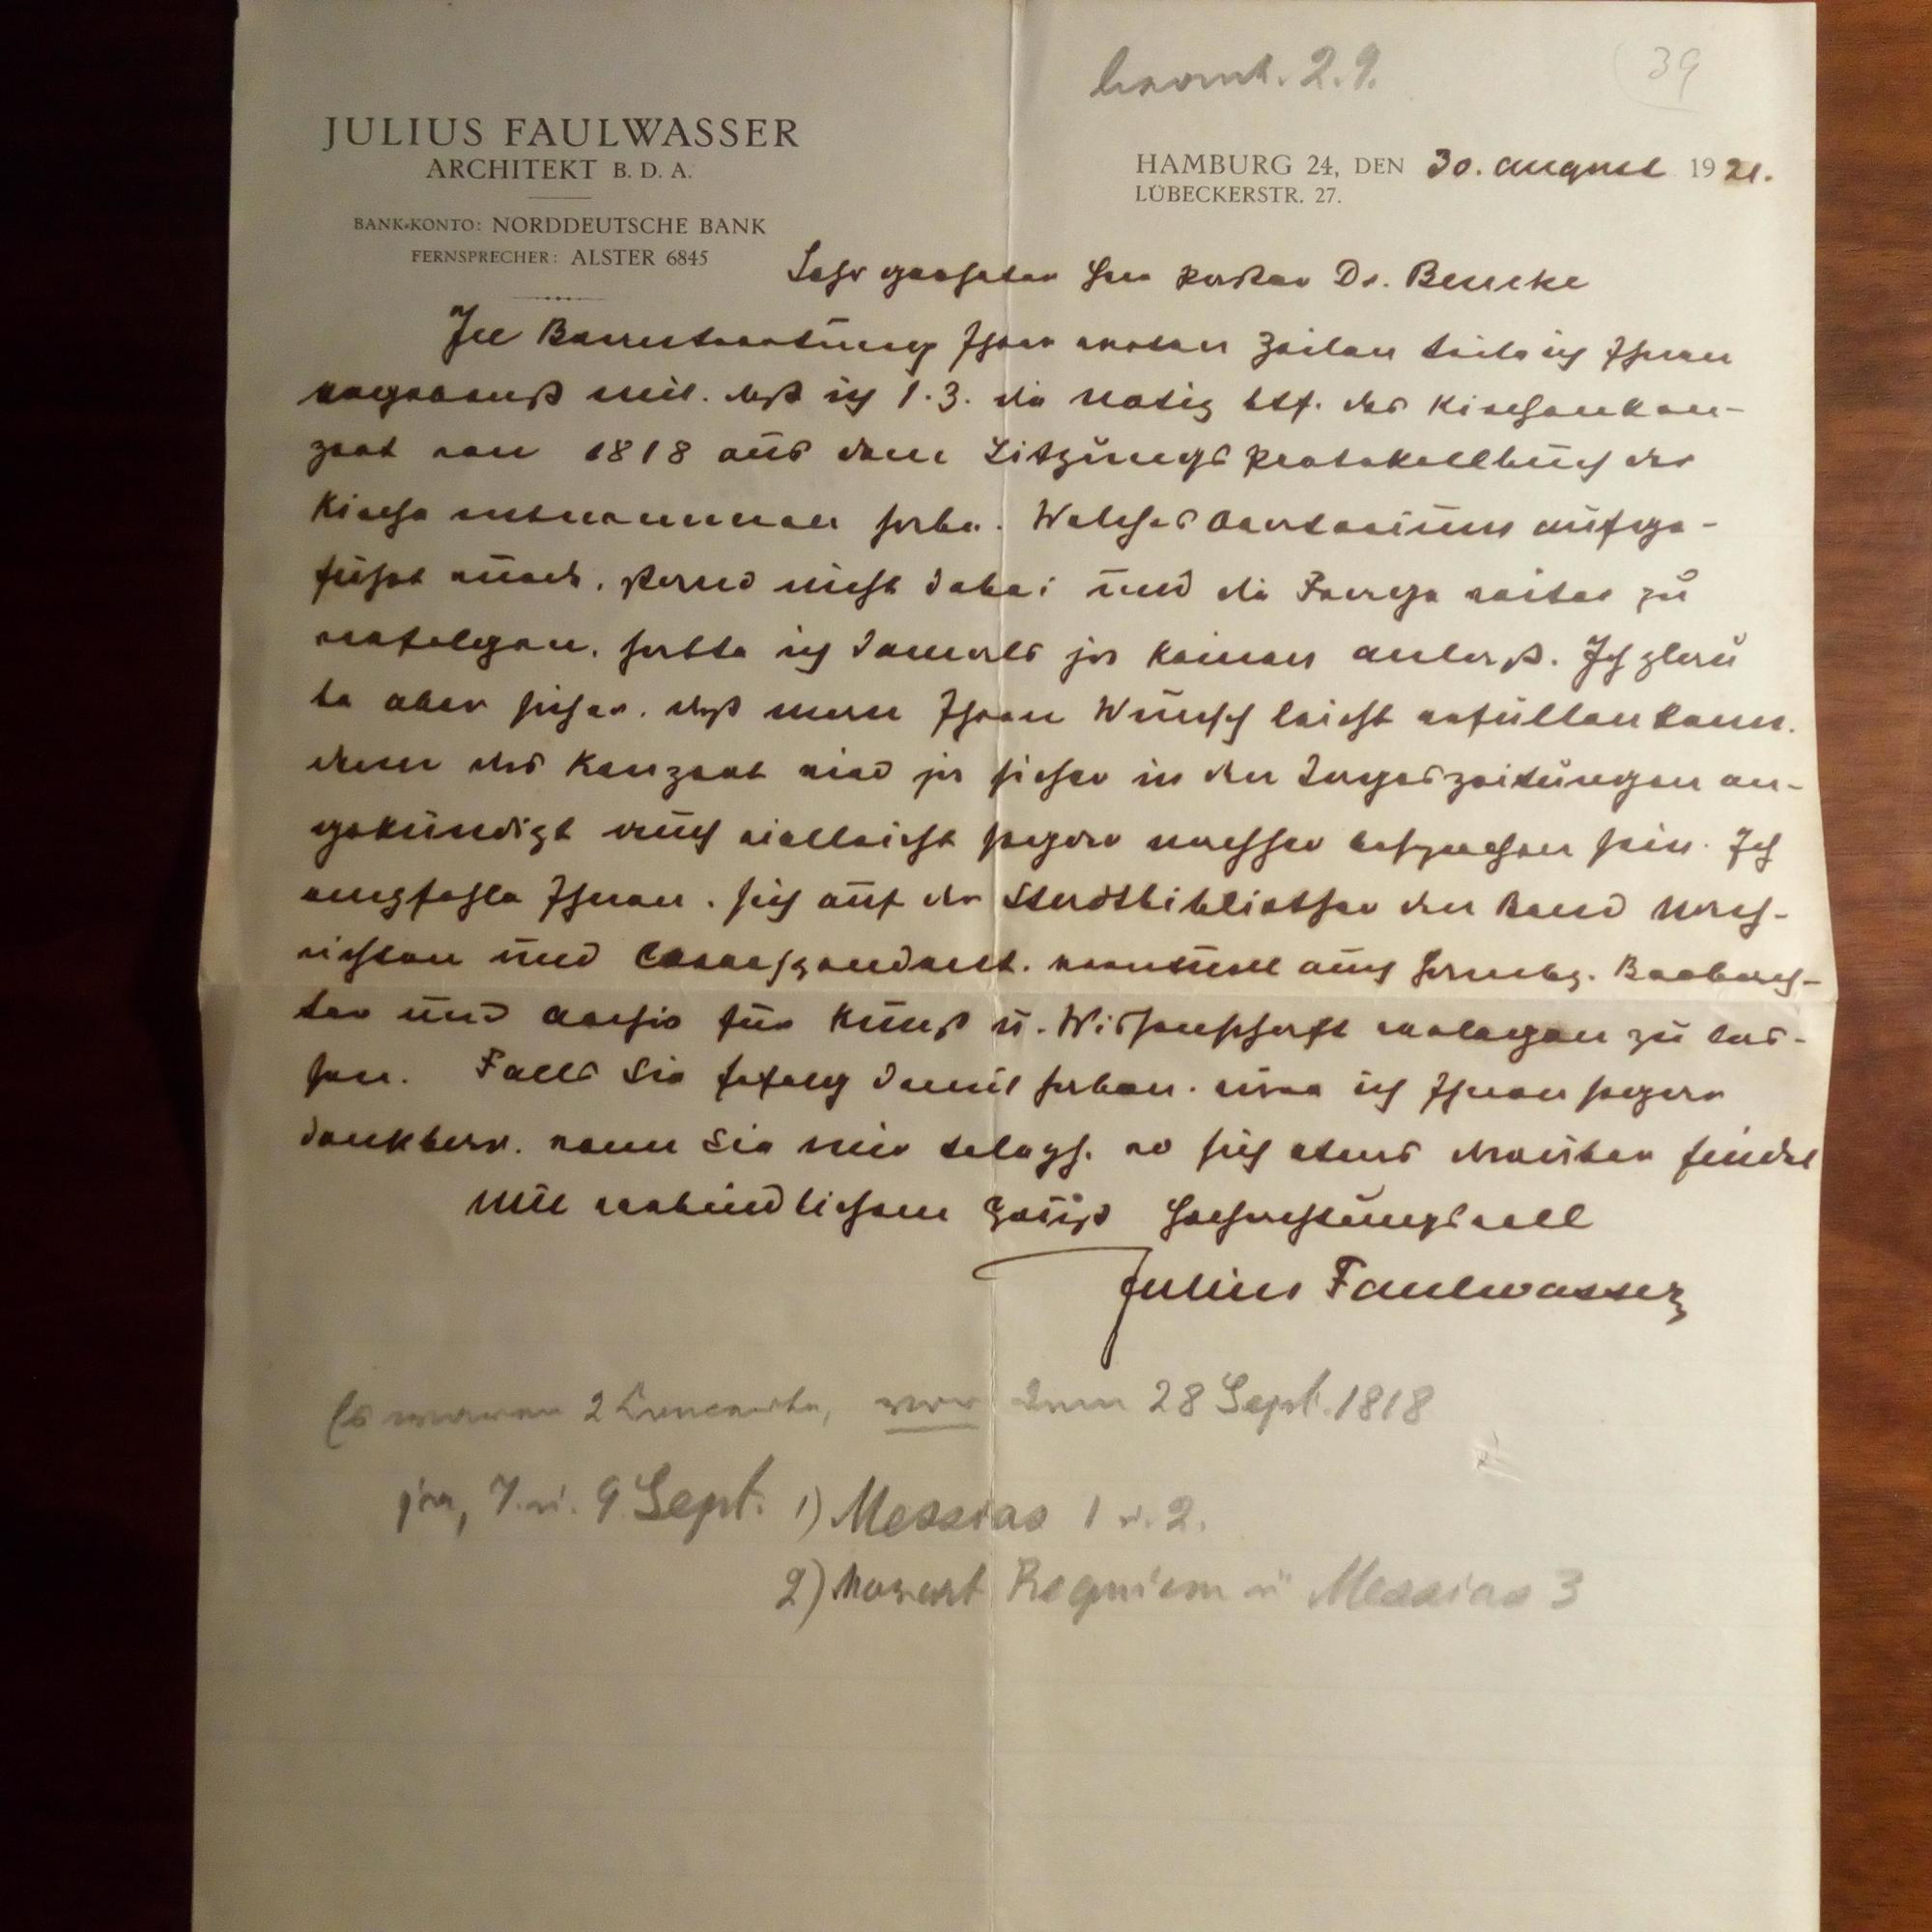 beantw. 2.9.
39
JULIUS FAULWASSER
ARCHITEKT B. D. A.
BANK-KONTO: NORDDEUTSCHE BANK
FERNSPRECHER: ALSTER 6845
HAMBURG 24, DEN 30. August 1921.
LÜBECKERSTR. 27.
Sehr geehrter Herr Pastor Dr. Beneke
In Beantwortung Ihrer werten Zeilen teile ich Ihnen
ergebenst mit, daß ich s. Z. die Notiz btf. das Kirchenkon-
zert von 1818 aus dem Sitzungsprotokollbuch der
Kirche entnommen habe. Welches Oratorium aufge-
führt wurde, stand nicht dabei und die Frage weiter zu
verfolgen, hatte ich damals ja keinen Anlaß. Ich glau
be aber sicher, daß man Ihren Wunsch leicht erfüllen kann.
denn das Konzert wird ja sicher in den Tageszeitungen an-
gekündigt auch vielleicht sogar nachher besprochen sein. Ich
empfehle Ihnen, sich auf der Stadtbibliothek den Band Nach-
richten und Correspondent, eventuell auch Hambg. Beobach-
ter und Archiv für Kunst u. Wissenschaft vorlegen zu las-
sen. Falls Sie Erfolg damit haben, wäre ich Ihnen sogar
dankbar, wenn Sie mir telegh. wo sich etwas darüber findet
Mit verbindlichem Gruß Hochachtungsvoll
Julius Faulwasser
Es waren 2 Concerte, vor dem 28 Sept. 1818
7. u. 9 Sept. 1) Messias 1 u. 2.
2) Mozart Requiem u Messias 3